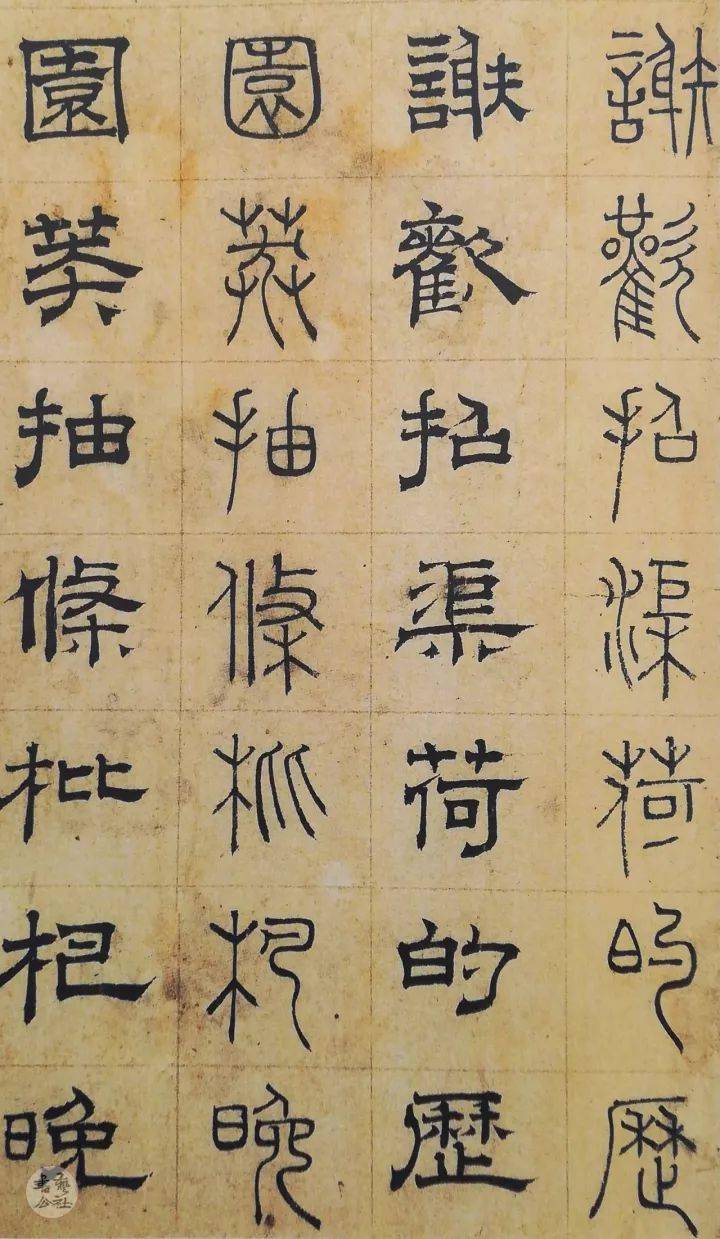 謝歡招渠荷的歷
謝歡招渠荷的歷
園莽抽條枇杷晚
園莽抽條枇杷晚
書藝公社